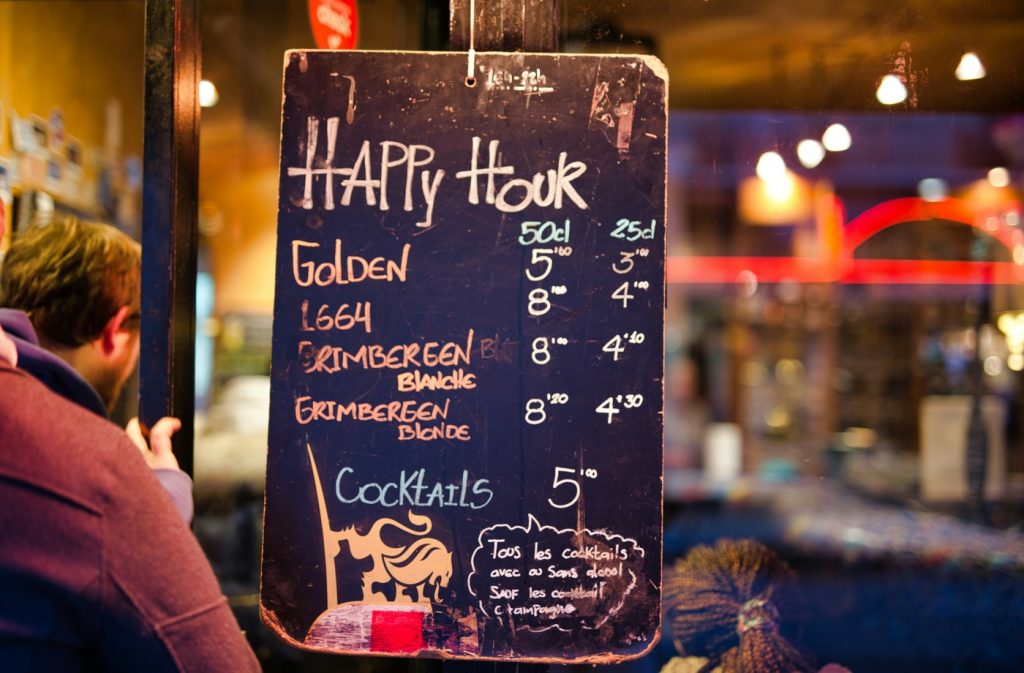 Happy Hour
50cl 25cl
Golden 5'00 3'00
1664 8'00 4'00
Grimbergen 8'00 4'10
Blanche
Grimbergen 8'20 4'30
Blonde
Cocktails 5'00
Tous les cocktails
avec ou sans alcool
Sauf les cocktail
champagne